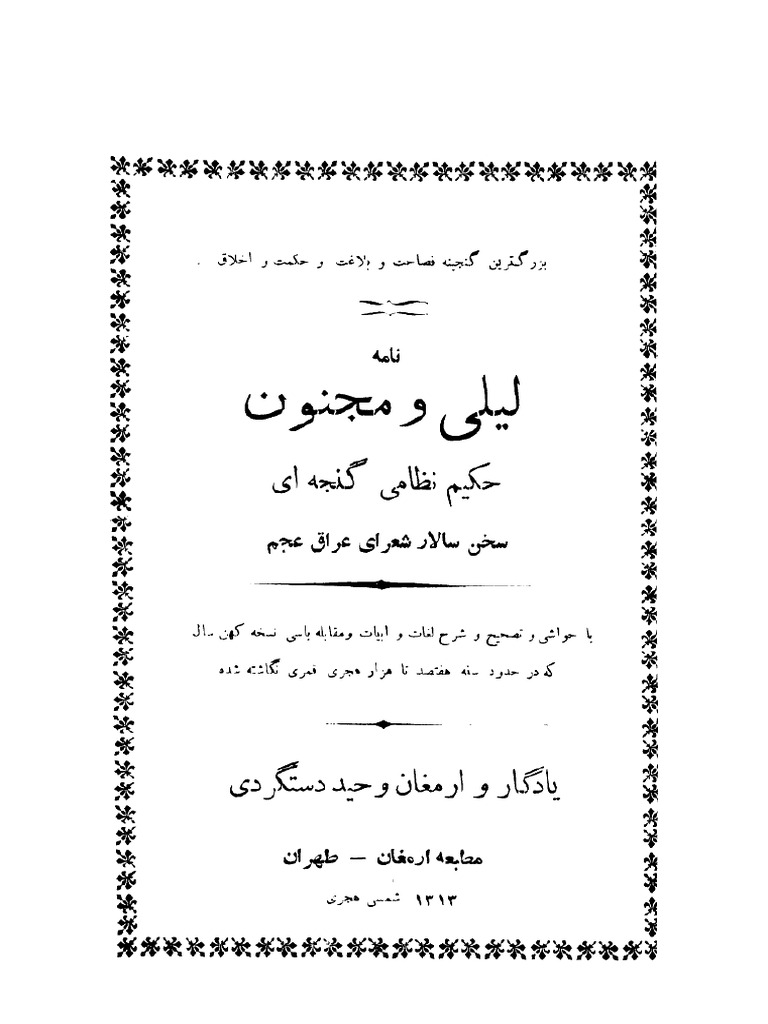 بزرگترین گنجینه فصاحت و بلاغت و حکمت و اخلاق .
نامه
لیلی و مجنون
حکیم نظامی گنجه ای
سخن سالار شعرای عراق عجم
با حواشی و تصحیح و شرح لغات و ابیات و مقابله باسی نسخه کهن سال
که در حدود سنه هفتصد تا هزار هجری قمری نگاشته شده
یادگار و ارمغان وحید دستگردی
مطبعه ارمغان — طهران
۱۳۱۳ شمسی هجری